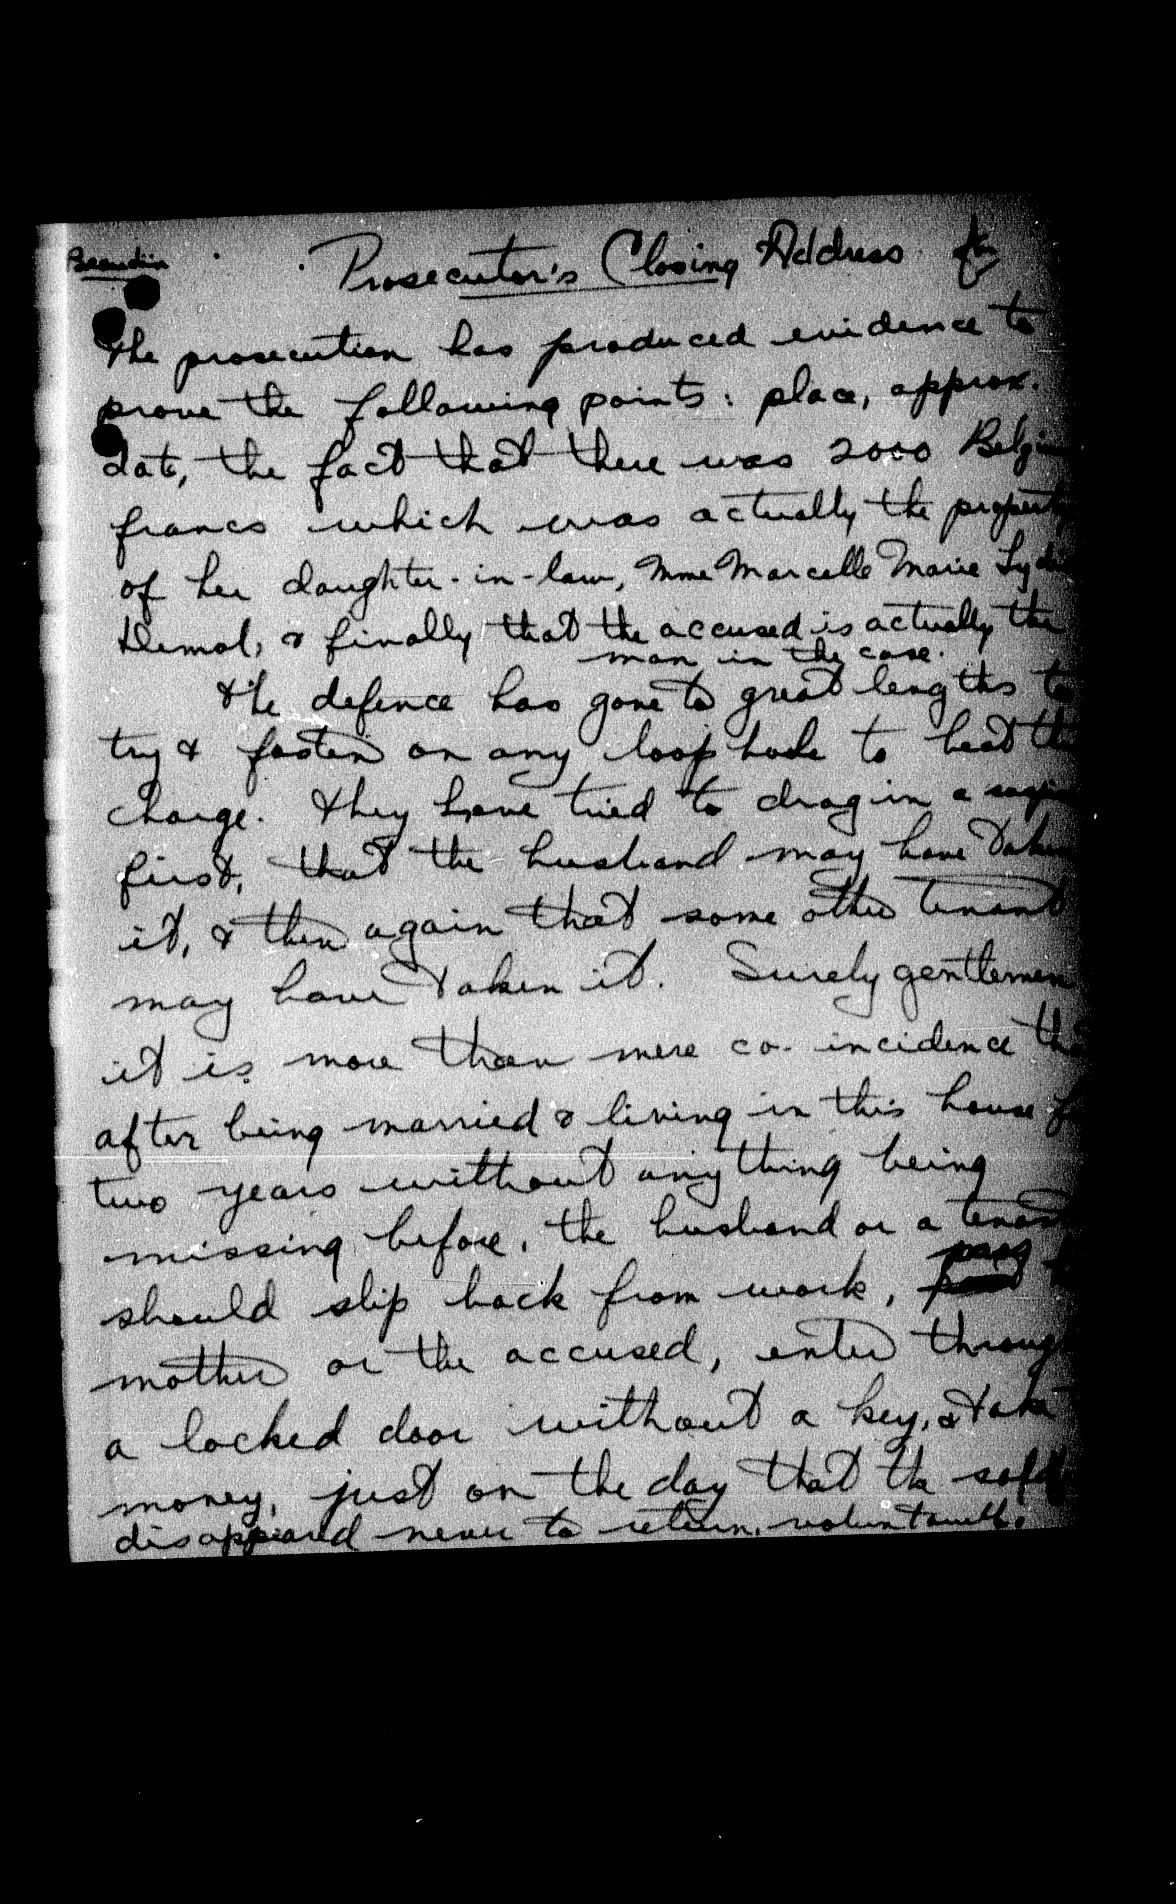 Beaudoin
Prosecutor's Closing Address
The prosecution has produced evidence to
prove the following points: place, approx.
date, the fact that there was 2000 Belgian
francs which was actually the property
of her daughter-in-law, Mme Marcelle Marie Lydi
Demol, & finally that the accused is actually the
man in the case.
The defence has gone to great lengths to
try & fasten on any loop hole to beat the
charge. They have tried to drag in a
first, that the husband may have taken
it, & then again that some other tenant
may have taken it. Surely gentlemen
it is more than mere co-incidence tha
after being married & living in this house f
two years without anything being
missing before, the husband or a tenant
should slip back from work, pass
mother or the accused, enter through
a locked door without a key, & take
money, just on the day that the sold
disappeared never to return, voluntarily.